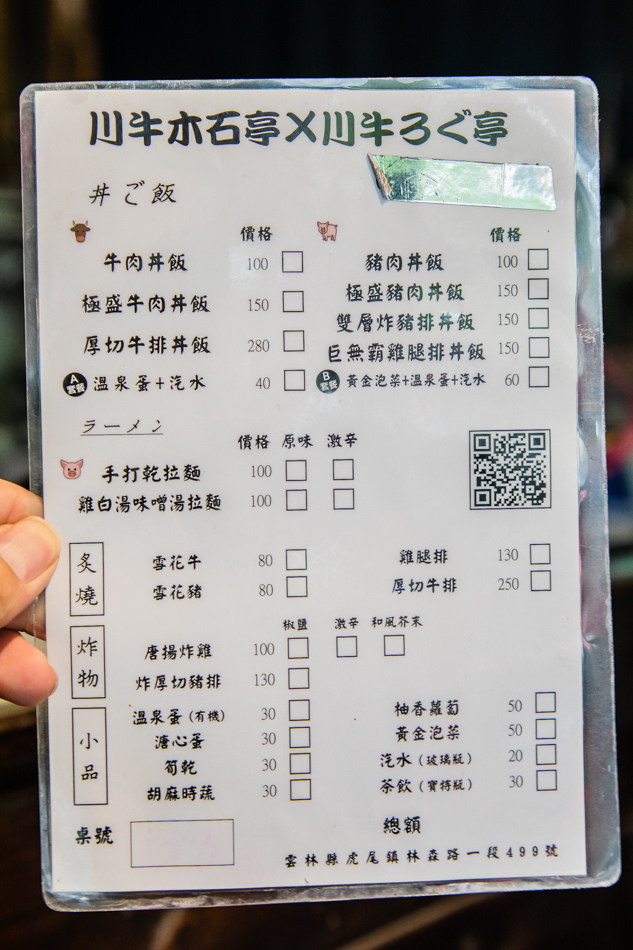 川牛木石亭X川牛ろぐ亭
丼ご飯
價格 價格
牛肉丼飯 100 豬肉丼飯 100
極盛牛肉丼飯 150 極盛豬肉丼飯 150
雙層炸豬排丼飯 150
厚切牛排丼飯 280 巨無霸雞腿排丼飯 150
A套餐 溫泉蛋+汽水 40 B套餐 黃金泡菜+溫泉蛋+汽水 60
ラーメン
價格 原味 激辛
手打乾拉麵 100
雞白湯味噌湯拉麵 100
炙燒
雪花牛 80 雞腿排 130
雪花豬 80 厚切牛排 250
炸物
椒鹽 激辛 和風芥末
唐揚炸雞 100
炸厚切豬排 130
小品
溫泉蛋(有機) 30 柚香蘿蔔 50
溏心蛋 30 黃金泡菜 50
筍乾 30 汽水(玻璃瓶) 20
胡麻時蔬 30 茶飲(寶特瓶) 30
桌號 總額
雲林縣虎尾鎮林森路一段499號